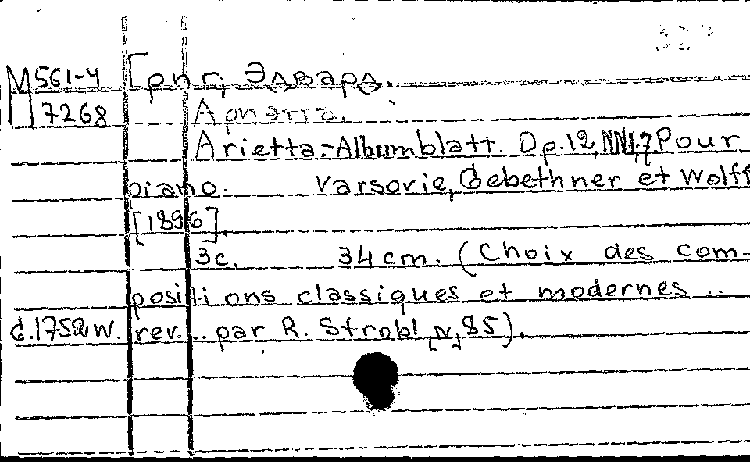 М561-4 Григ, Эдвард.
П7268 Ариетта.
Arietta-Albumblatt. Op.12, NN1,7 Pour
piano. Varsovie, Gebethner et Wolff
[1896].
3c. 34cm. (Choix des com-
positions classiques et modernes..
d.1752w. rev... par R. Strobl, N, 85).